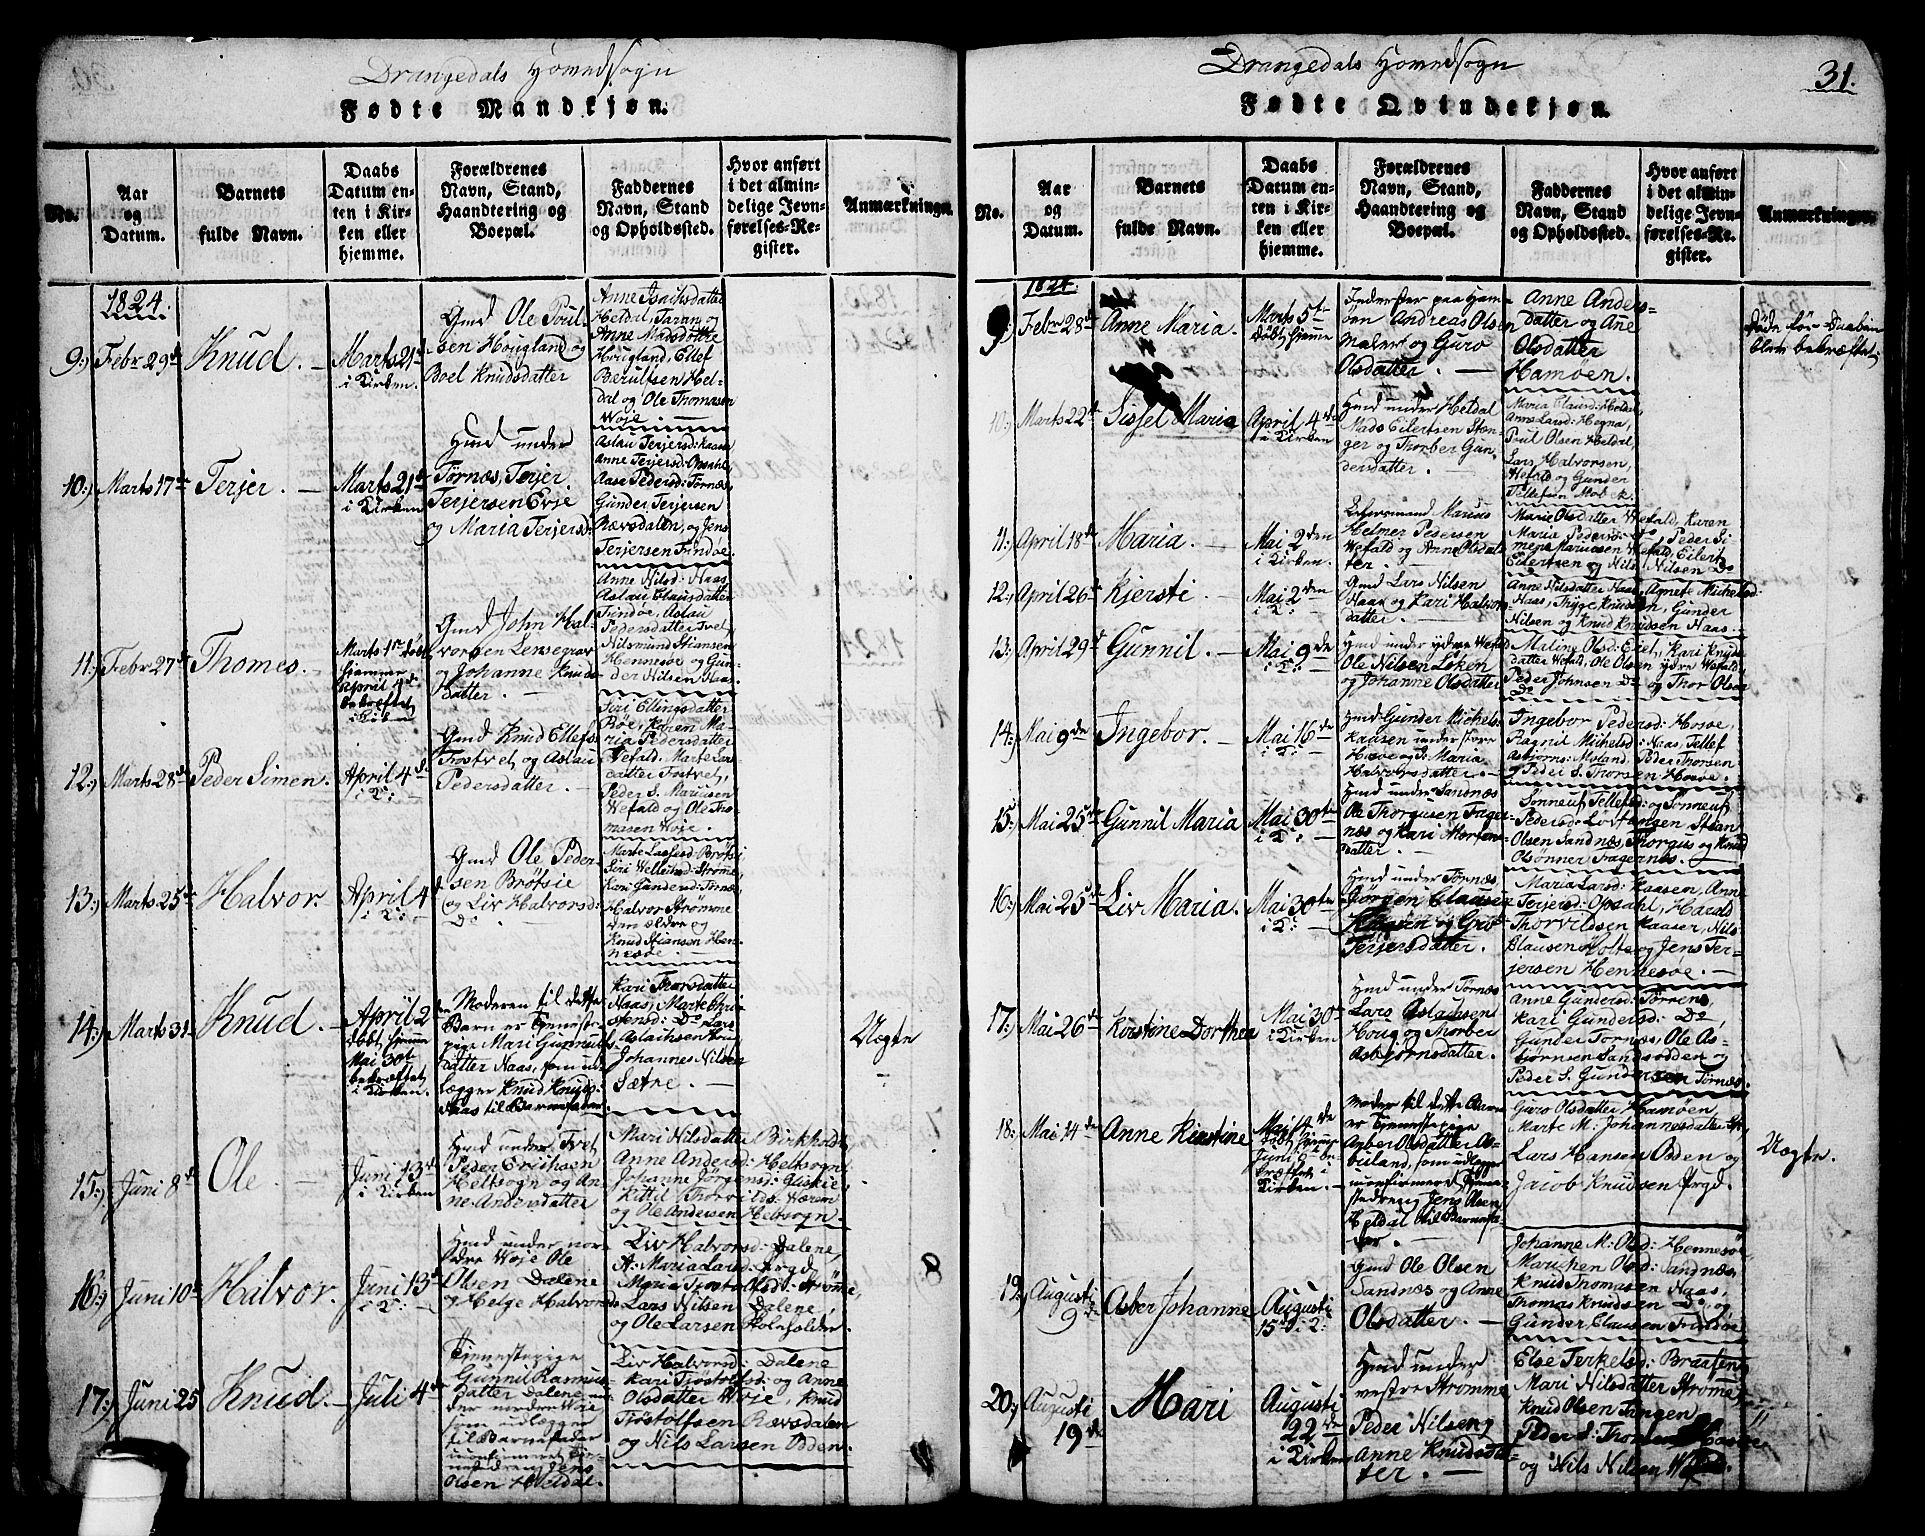 Drangedals Hovedsogn
Fødte Mandkjøn.
No.
Aar
og
Datum.
Barnets
fulde Navn.
Daabs
Datum en-
ten i Kir-
ken eller
hjemme.
Forældrenes
Navn, Stand,
Haandtering og
Boepæl.
Faddernes
Navn, Stand
og Opholdssted.
Hvor anført
i det almin-
delige Jevn-
førelses-Re-
gister.
Anmærkninger.
1824.
9.) Febr 29de
Knud.
Marts 21de
i Kirken.
Gmd Ole Poul-
sen Hougland og
Boel Knudsdatter
Anne Isachsdatter
Heldal, Taran og
Anne Madsdattre
Hougland, Ellef
Berultsen Hel-
dal og Ole Thomasen
Woje
10.) Marts 17de
Terjer.
Marts 21de
i Kirken
Huusmd under
Tørnæs, Terjer
Terjersen Evje
og Maria Terjersd:
Aslau Terjersd: Kaasa
Anne Terjersd: Opsahl,
Aase Pedersd: Tørnæs,
Gunder Terjersen
Rævsdalen, og Jens
Terjersen Trndøe.
11.) Febr 27de
Thomes.
Marts 1ste døbt
hjemme
April 4de
bekræftet
i Kirken
Gmd John Hal-
vorsen Lensegrav
og Johanne Knuds-
datter.
Anne Nilsd: Naas,
Aslau Clausdatter
Trndøe, Aslau
Pedersdatter Tvet,
Nilsmund Stiansen
Hennesøe og Gun-
der Nilsen Naas.
12.) Marts 28de
Peder Simen.
April 4de
i D:
Gmd Knud Ellefs:
Trostvet og Aslau
Pedersdatter.
Siri Ellingsdatter
Bøe, Karen Ma-
ria Pedersdatter
Wefald, Marte Lars-
datter Trostvet,
Peder S. Mariusen
Wefald og Ole Tho-
masen Woje.
13.) Marts 25de
Halvor
April 4de
i D:
Gmd Ole Peder-
sen Brøtsie
og Liv Halvorsd:
Do
Halvor Strømme
den ældre og
Knud Stiansen Hen-
nesøe.
14.) Marts 31te
Knud.
April 2den
døbt hjemme
Mai 30te
bekræftet
i Kirken.
Moderen til dette
Barn er Tjeneste-
pige Mari Gunnuls-
datter Naas, som ud-
lægger Knud Knuds:
Naas til Barnefader
Kari Thorsdatter
Naas, Marte Chri-
stensd: Do Lars
Aslachsen
Johannes Nilsen
Sætre.
Uægte
15.) Juni 8de
Ole
Juni 13de
i Kirken
Huusmd under Tvet
Peder Erichsen
Heltsogn og An-
ne Andersdatter
Mari Nilsdatter Birkholdt,
Anne Andersd: Heltsogn,
Johanne Jørgensd: Gliskie,
Kittil Thorvilds: Wæren
og Ole Andersen Heltsogn
16.) Juni 10de
Halvor.
Juni 13de
i D:
Huusmd under nor-
dre Woje Ole
Olsen Dalene
og Helge Halvorsd:
Liv Halvorsd: Dalene,
A: Maria Larsd: Prgd,
Maria Trostolfsd: Strømme,
Lars Nilsen Dalene,
og Ole Larsen Kolnholder
17.) Juni 25
Knud.
Juli 4de
Tjenestepige
Gunnil Rasmus-
datter Dalene un-
der nordre Woje
som udlægger
til Barnefader
Olsen Heldal
Liv Halvorsd: Dalene
Kari Tjøstolfsd: og Anne
Olsdatter Woje, Knud
Tjøstolfsen Rævsdalen
og Nils Larsen Odden.
8
Drangedals Hovedsogn
31.
Fødte Qvindekjøn.
No.
Aar
og
Datum.
Barnets
fulde Navn.
Daabs
Datum en-
ten i Kir-
ken eller
hjemme.
Forældrenes
Navn, Stand,
Haandtering og
Boepæl.
Faddernes
Navn, Stand
og Opholdssted.
Hvor anført
i det almin-
delige Jevn-
førelses-Re-
gister.
Anmærkninger.
1824.
9 Febr 28de
Anne Maria.
Marts 5te
døbt hjemme
Inderster paa Ham-
øen Andreas Olsen
Maler og Guro
Olsdatter.
Anne Anders-
datter og Ane
Olsdatter
Hamøen.
døde før Daaben
blev bekræftet.
10.) Marts 22de
Sissel Maria
April 4de
i Kirken
Huusmd under Heldal
Mads Eilertsen Stæn-
ger og Thorber Gun-
dersdatter.
Maria Clausd: Heldal,
Anne Larsd: Hegna,
Poul Olsen Heldal,
Lars Halvorsen,
Wefald og Gunder
Tellefsen Mobek.
11.) April 18de
Maria.
Mai 2den
i Kirken.
Leiermand Marius
Helmer Pedersen
Wefald og Anne Olsdat-
ter.
Marie Olsdatter Wefald, Karen
Maria Pedersd: Do, Peder Si-
mens Mariusen Wefald, Eilert
Eilertsen og Nils Nilsen Do
12.) April 26de
Kjersti
Mai 2den
i D:
Gmd Lars Nilsen
Naas og Kari Halvors-
datter.
Anne Nilsdatter Naas, Agnete Michelsd:
Naas, Tygge Knudsen, Gunder
Nilsen og Knud Knudsen Naas.
13.) April 29de
Gunnil.
Mai 9de
i D:
Huusmd under ydre Wefald
Ole Nilsen Løken
og Johanne Olsdatter
Maling Olsd: Eiet, Kari Knuds-
datter Wefald, Ole Olsen ydre Wefald,
Peder Johnsen Do og Thor Olsen
Do
14.) Mai 9de
Ingebor.
Mai 16de
i D:
Huusmd Gunder Michels:
Kaasen under store
Hovøe og S: Maria
Halvorsdatter.
Ingebor Pedersd: Hovøe,
Ragnil Michelsd: Naas, Tellef
Asbjørns: Moland, Peder Thorsen
og Peder S. Thorsen Hovøe.
15.) Mai 25de
Gunnil Maria
Mai 30te
i D:
Huusmd under Sandnæs
Ole Thorgusen Fager-
næs og Kari Morten-
datter.
Sønneuf Tellefsd: og Sønneuf
Pedersd: Løvtansen, Stian
Olsen Sandnæs, Thorgus og Knud
Olsønner Fagernæs.
16.) Mai 25de
Liv Maria.
Mai 30te
i D:
Huusmd under Tørnæs
Jørgen Clausen
Kaasen og Gro
Terjersdatter.
Maria Larsd: Kaasen, Anne
Terjersd: Opsahl, Harald
Thorvildsen Kaasen, Nils
Clausen Holte og Jens Ter-
jersen Hennesøe.
17.) Mai 26de
Kirstine Dorthea
Mai 30te
i Kirken
Huusmd under Tørnæs
Lars Aslachsen
Houg og Thorber
Asbjørnsdatter.
Anne Gundersd: Tørrens,
Kari Gundersd: Do,
Gunder Tornæs, Ole As-
bjørnsen Sandsodden og
Peder S. Gundersen Tørnæs.
18.) Mai 14de
Anne Kirstine
Mai 14de
døbt hjemme
Juni 9 be-
kræftet i
Kirken.
Moder til dette Barn
er Tjenestepige
Asber Olsdatter As-
buland, som udlægger
uconfirmered Tjene-
stedreng Jens Olsen
Heldal til Barnefa-
der.
Guro Olsdatter Hamøen,
Marte M. Johannesdatter
Lars Hansen Odden og
Jacob Knudsen Prgd.
Uægte.
19.) Augusti
9de
Asber Johanne
Augusti
15de i D:
Gmd Ole Olsen
Sandnæs og Anne
Olsdatter.
Johanne M: Olsd: Hennesøe
Marichen Olsd: Sandnæs,
Knud Thomasen Naas,
Thomas Knudsen Do, og
Gunder Clausen Trndøe
20.) Augusti
19de
Mari
Augusti
22de
i Kirken
Huusmd under
vestre Strømme
Peder Nilsen og
Anne Knudsdat-
ter.
Else Terkelsd: Braasen,
Mari Nilsdatter Strømme,
Knud Olsen Tangen
Peder S: Thorsen
og Nils Nilsen